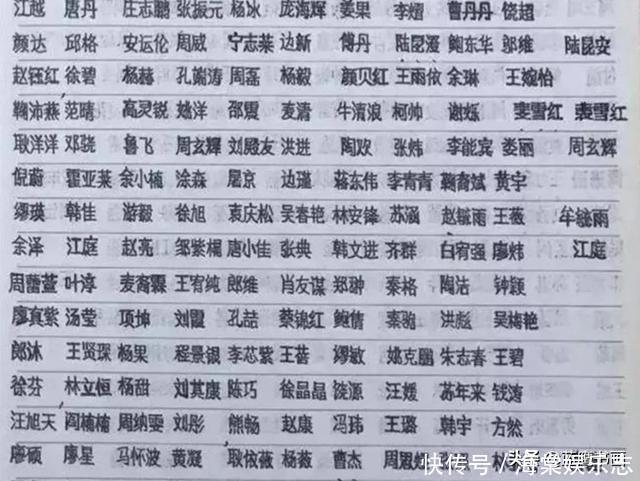 江越 唐丹 庄志鹏 张振元 杨冰 庞海辉 姜果 李熠 曹丹丹 饶超
颜达 邱格 安运伦 周威 宁志莱 边新 博丹 陆昆漫 鲍东华 邬维 陆昆安
赵钰红 徐碧 杨赫 孔嵩涛 周磊 杨毅 颜贝红 王雨依 余琳 王婉怡
鞠沛燕 范晴 高灵锐 姚洋 邵震 麦清 牛清浪 柯帅 谢烁 麦雪红 裴雪红
耿洋洋 邓骁 鲁飞 周玄辉 刘殿友 洪进 陶欢 张炜 李能宾 娄丽 周玄辉
倪蔚 霍亚莱 余小楠 涂淼 屠京 边瑾 蒋东伟 李青青 鞠裔斌 黄宇
缪瑛 韩佳 游毅 徐旭 袁庆松 吴春艳 林安锋 苏涵 赵毓雨 王薇 牟毓雨
余泽 江庭 赵亮 邹紫棍 唐小佳 张典 韩文进 宋群 白宥强 廖炜 江庭
周蕾萱 叶淳 麦裔霖 王宥纯 郎维 肖友谋 郑翀 秦格 陶沽 钟颖
廖真紫 汤莹 顶坤 刘霞 孔喆 蔡锦红 鲍倩 秦驰 洪彪 吴梅艳
郎沐 王贤琛 杨果 程景银 李芯紫 王荟 缪敏 姚克鹏 朱志春 王碧
徐芬 林立恒 杨甜 刘其康 陈巧 徐晶晶 饶源 汪媛 苏年来 钱涛
汪旭天 阎楠楠 周纳雯 刘彤 熊畅 赵康 冯玮 王璐 韩宇 方然
廖硕 廖星 马怀波 黄凝 耿依薇 杨薇 曹杰
快传号/海棠娱乐志